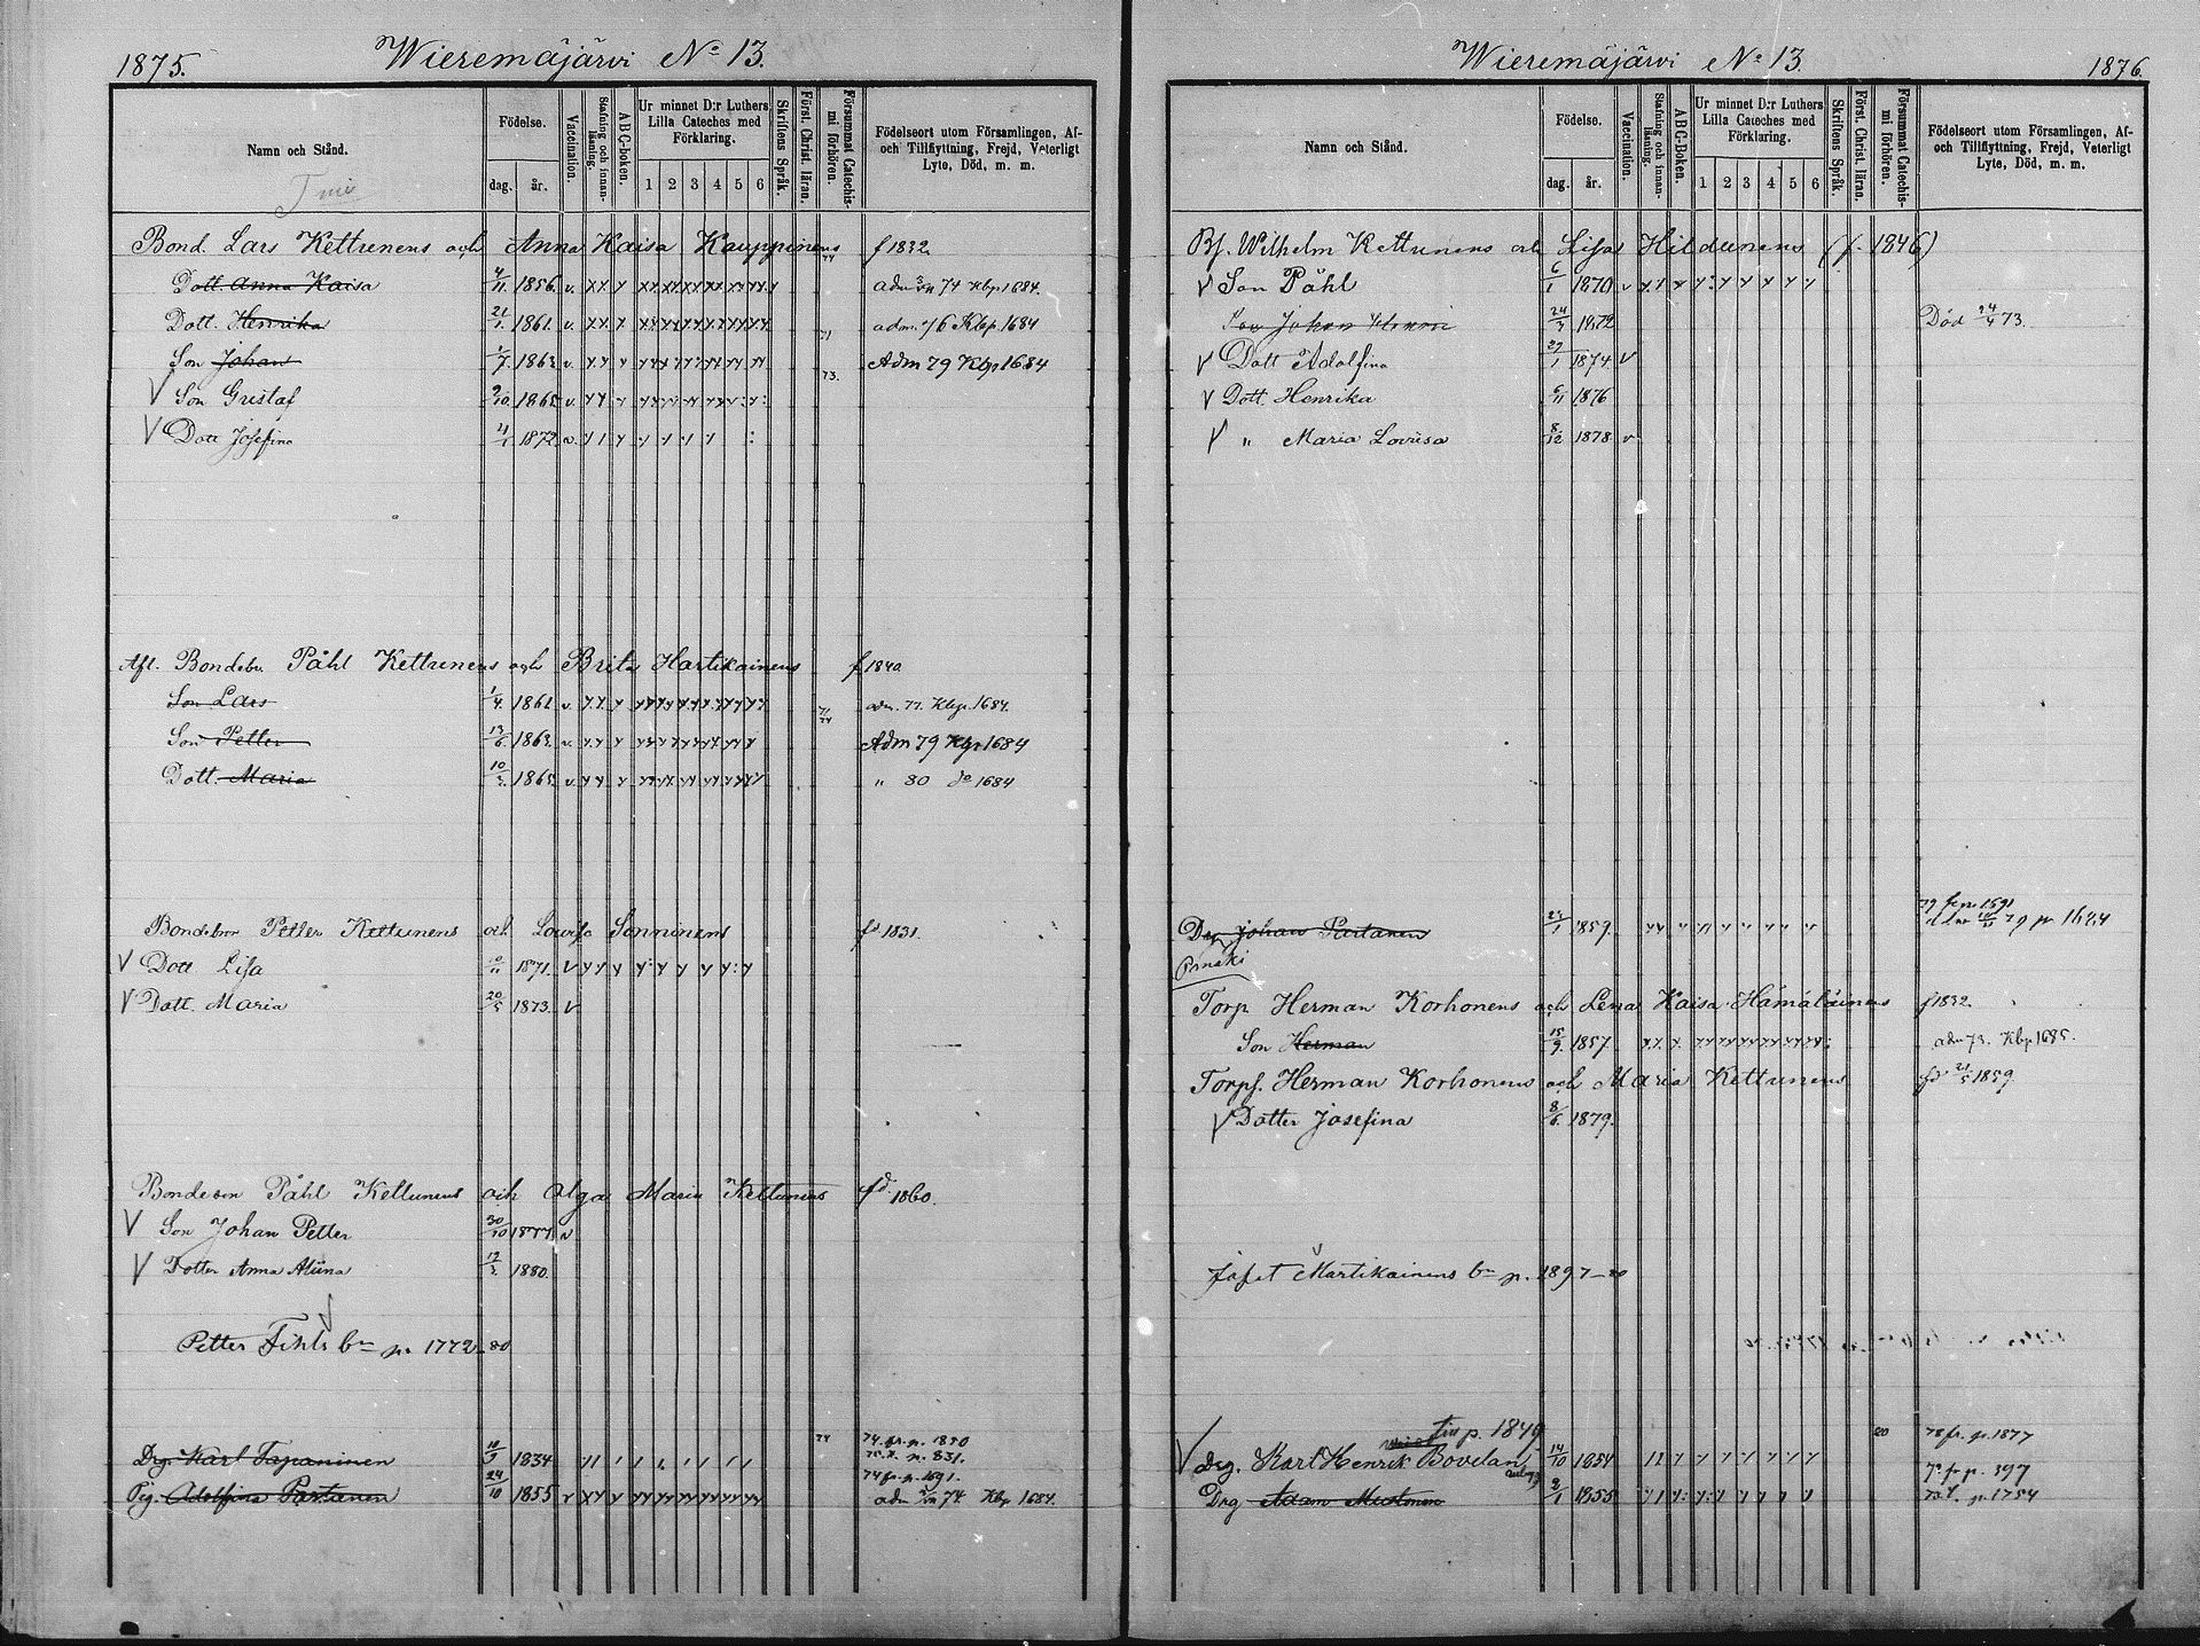 1875.
Wieremäjärvi No 13.
Namn och Stånd.
Födelse.
dag. år.
Vaccination.
Stafning och innan-läsning.
ABC-boken.
Ur minnet D:r Luthers Lilla Cateches med Förklaring.
1 2 3 4 5 6
Skriftens Språk.
Först. Christ. läran.
Försummat Catechis-mi förhören.
Födelseort utom Församlingen, Af- och Tillflyttning, Frejd, Veterligt Lyte, Död, m. m.
Bond. Lars Kettunens och Anna Kaisa Kauppinens f 1832.
Dott. Anna Kaisa 4/11 1856. v. adm 74 Kbp 1684.
Dott. Henrika 21/1. 1861. v. adm. 76 Kbp. 1684
Son Johan 1/7. 1863. v. 73. Adm 79 Kbp 1684
V Son Gustaf 2/10. 1865. v.
V Dott Josefina 11/1 1872 v.
Afl. Bondebr. Påhl Kettunens och Brita Hartikainens f 1840
Son Lars 1/4. 1861. v. adm. 77. Kbp. 1684.
Son Petter 13/6. 1863. v. Adm 79 Kbp 1684
Dott. Maria 10/3. 1865. v. " 80 do 1684
Bondebror Petter Kettunens och Lovisa Sonninens fd 1831.
V Dott Lisa 10/11 1871. V
V Dott. Maria 20/5 1873. V
Bondeson Påhl Kettunens och Olga Maria Kettunens fd. 1860.
V Son Johan Petter 30/10 1877. v
V Dotter Anna Alina 12/3. 1880.
Petter Fihls bn p. 1772-80
Drg. Karl Tapaninen 18/9 1834 74 74. fr. p. 1850
75. t. p. 831.
Pig. Adolfina Partanen 24/10 1855 v 74 fr. p. 1691.
adm 74. Kbp 1684.
Wieremäjärvi No 13.
1876.
Namn och Stånd.
Födelse.
dag. år.
Vaccination.
Stafning och innan-läsning.
ABC-Boken.
Ur minnet D:r Luthers Lilla Cateches med Förklaring.
1 2 3 4 5 6
Skriftens Språk.
Först. Christ. läran.
Försummat Catechis-mi förhören.
Födelseort utom Församlingen, Af- och Tillflyttning, Frejd, Veterligt Lyte, Död, m. m.
Bf. Wilhelm Kettunens och Lisa Hildunens (f. 1846)
V Son Påhl 6/1 1870 v
Son Johan Henric 24/3 1872 Död 24/4 73.
V Dott Adolfina 27/1 1874. V
V Dott. Henrika 6/11 1876
V " Maria Lovisa 8/12 1878 v
Drg Johan Partanen 1859. 79 fr p. 1591
79 p 1624
Torp. Herman Korhonens och Lena Kaisa Hämäläinens f 1832.
Son Herman 15/9. 1857. adm 73. Kbp 1685.
Torpf. Herman Korhonens och Maria Kettunens fd 21/5 1859.
V Dotter Josefina 8/6. 1879.
Jafet Martikainens bn p. 1897-80
p. 1849
V Drg. Karl Henrik Bovelan 14/10 1854 80 78 fr. p. 1877
Drg Adam Mustonen 2/1 1855 fr p. 397
t. p. 1754